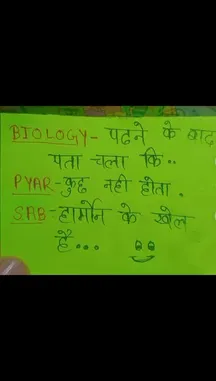 BIOLOGY - पढने के बाद
पता चला कि..
PYAR - कुछ नही होता.
SAB - हार्मोन के खेल
है...